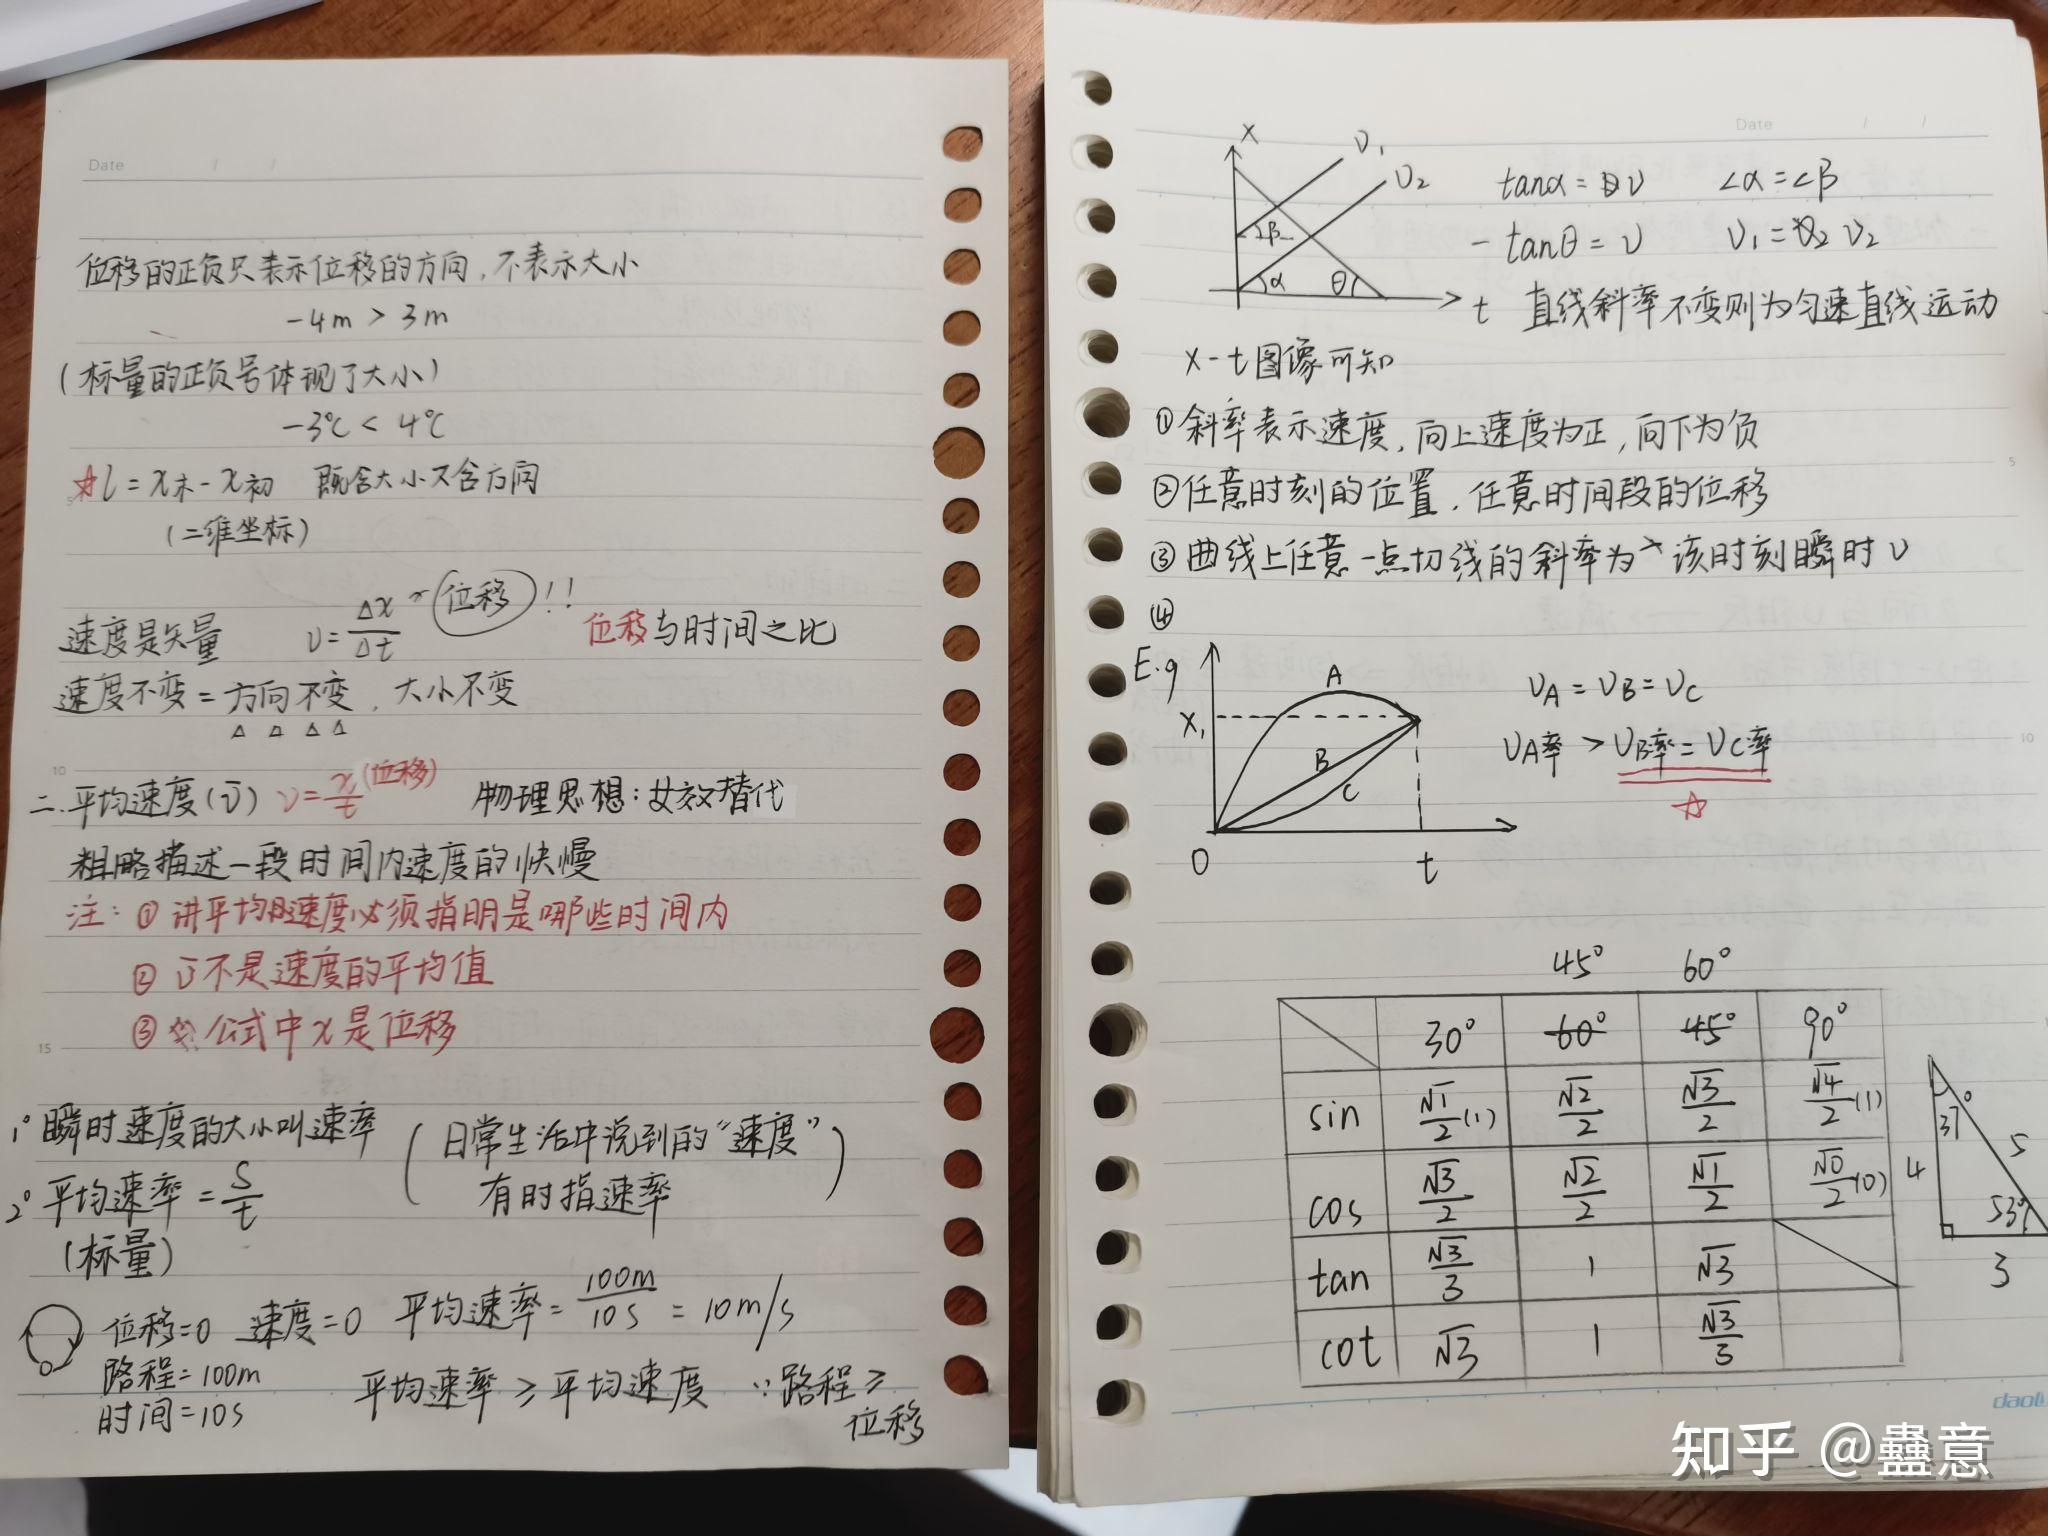 Date / /
位移的正负只表示位移的方向,不表示大小
-4m > 3m
(标量的正负号体现了大小)
-3℃ < 4℃
☆ l = x末 - x初 既含大小又含方向
(二维坐标)
速度是矢量 v = Δx/Δt ~ 位移!! 位移与时间之比
速度不变 = 方向不变,大小不变
10
二.平均速度(v̄) v = x/t (位移) 物理思想:等效替代
粗略描述一段时间内速度的快慢
注:① 讲平均速度必须指明是哪些时间内
② v̄不是速度的平均值
③ 公式中x是位移
15
1° 瞬时速度的大小叫速率 (日常生活中说到的“速度”
2° 平均速率 = S/t 有时指速率)
(标量)
位移=0 速度=0 平均速率 = 100m/10s = 10m/s
路程=100m
时间=10s 平均速率 ≥ 平均速度 ∵路程≥
位移
Date / /
x
v₁
v₂
tanα = v ∠α = ∠β
- tanθ = v v₁ = v₂
β α θ
t 直线斜率不变则为匀速直线运动
x-t图像可知
①斜率表示速度,向上速度为正,向下为负
5
②任意时刻的位置,任意时间段的位移
③曲线上任意一点切线的斜率为该时刻瞬时v
④
E.g
A
x₁
B
C
0 t
vA = vB = vC
vA率 > vB率 = vC率
☆
10
45° 60°
30° 60° 45° 90°
sin √1/2 (1) √2/2 √3/2 √4/2 (1)
cos √3/2 √2/2 √1/2 √0/2 (0)
tan √3/3 1 √3
cot √3 1 √3/3
37°
5
4
53°
3
知乎 @蠱意